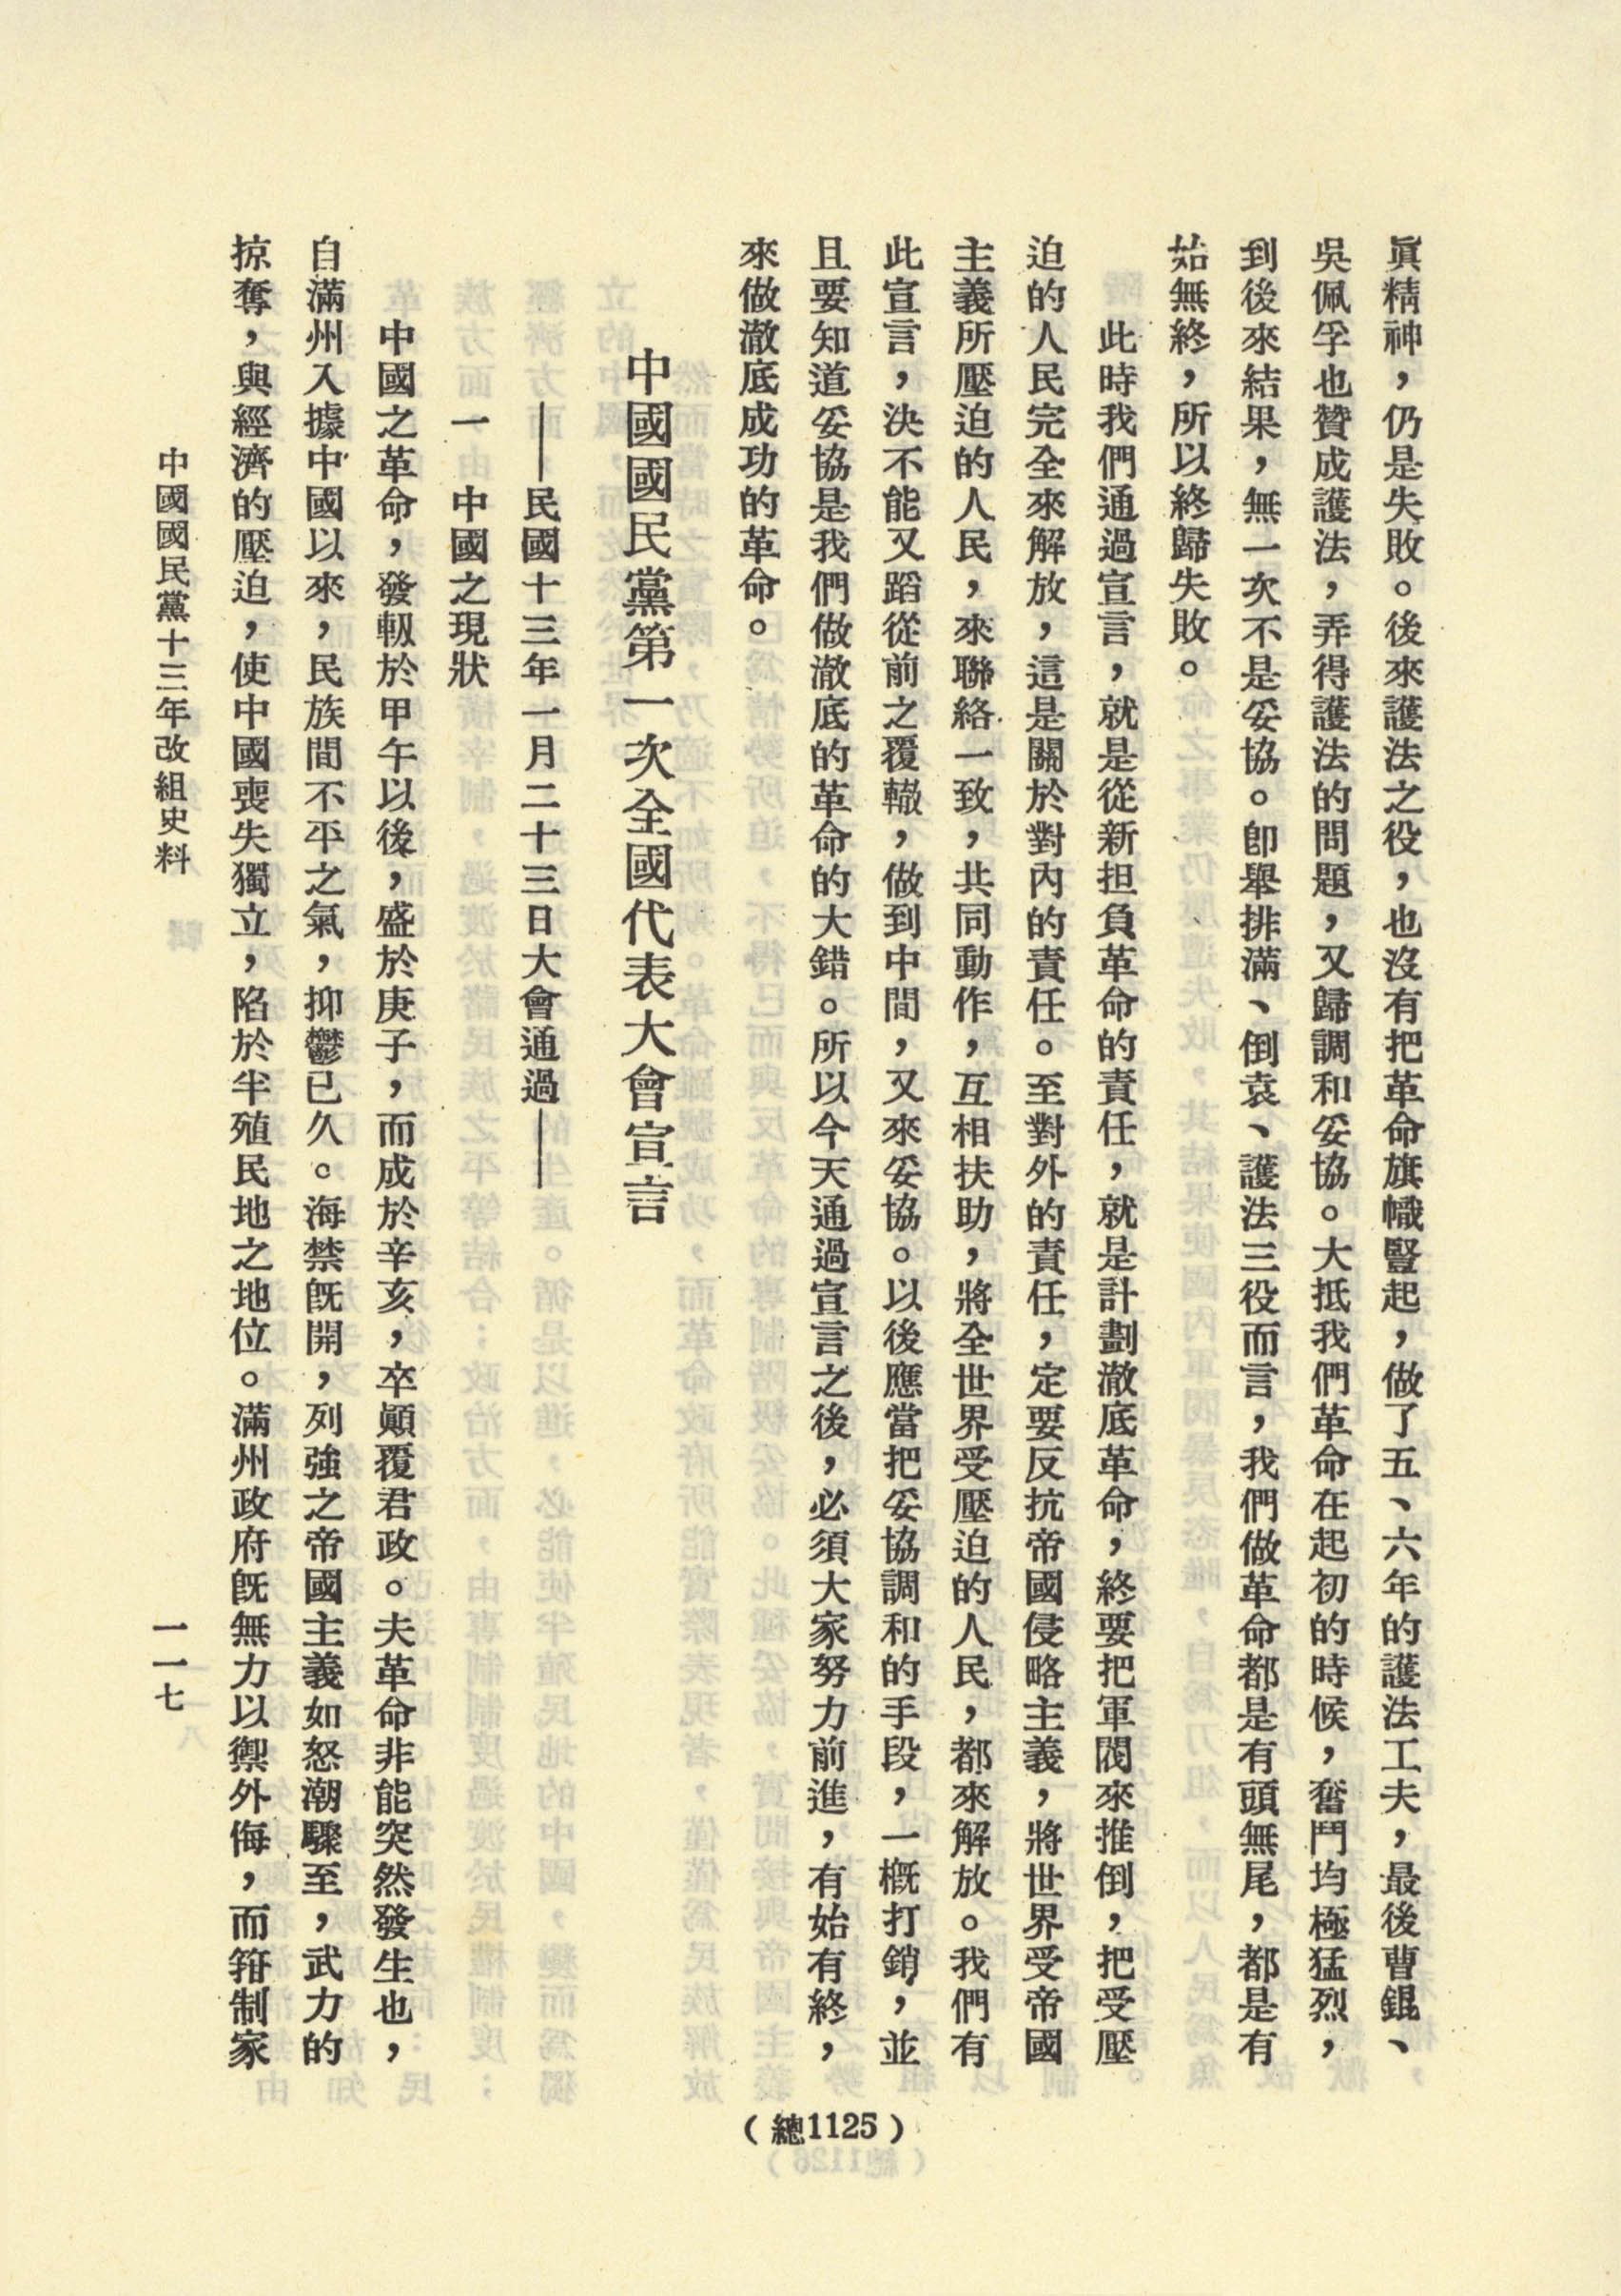 眞精神，仍是失敗。後來護法之役，也沒有把革命旗幟豎起，做了五、六年的護法工夫，最後曹錕、
吳佩孚也贊成護法，弄得護法的問題，又歸調和妥協。大抵我們革命在起初的時候，奮鬥均極猛烈，
到後來結果，無一次不是妥協。卽舉排滿、倒袁、護法三役而言，我們做革命都是有頭無尾，都是有
始無終，所以終歸失敗。
此時我們通過宣言，就是從新担負革命的責任，就是計劃澈底革命，終要把軍閥來推倒，把受壓
迫的人民完全來解放，這是關於對內的責任。至對外的責任，定要反抗帝國侵略主義，將世界受帝國
主義所壓迫的人民，來聯絡一致，共同動作，互相扶助，將全世界受壓迫的人民，都來解放。我們有
此宣言，決不能又蹈從前之覆轍，做到中間，又來妥協。以後應當把妥協調和的手段，一槪打銷，並
且要知道妥協是我們做澈底的革命的大錯。所以今天通過宣言之後，必須大家努力前進，有始有終，
來做澈底成功的革命。
中國國民黨第一次全國代表大會宣言
——民國十三年一月二十三日大會通過——
一　中國之現狀
中國之革命，發軔於甲午以後，盛於庚子，而成於辛亥，卒顚覆君政。夫革命非能突然發生也，
自滿州入據中國以來，民族間不平之氣，抑鬱已久。海禁旣開，列強之帝國主義如怒潮驟至，武力的
掠奪，與經濟的壓迫，使中國喪失獨立，陷於半殖民地之地位。滿州政府旣無力以禦外侮，而箝制家
中國國民黨十三年改組史料
一一七
（總1125）